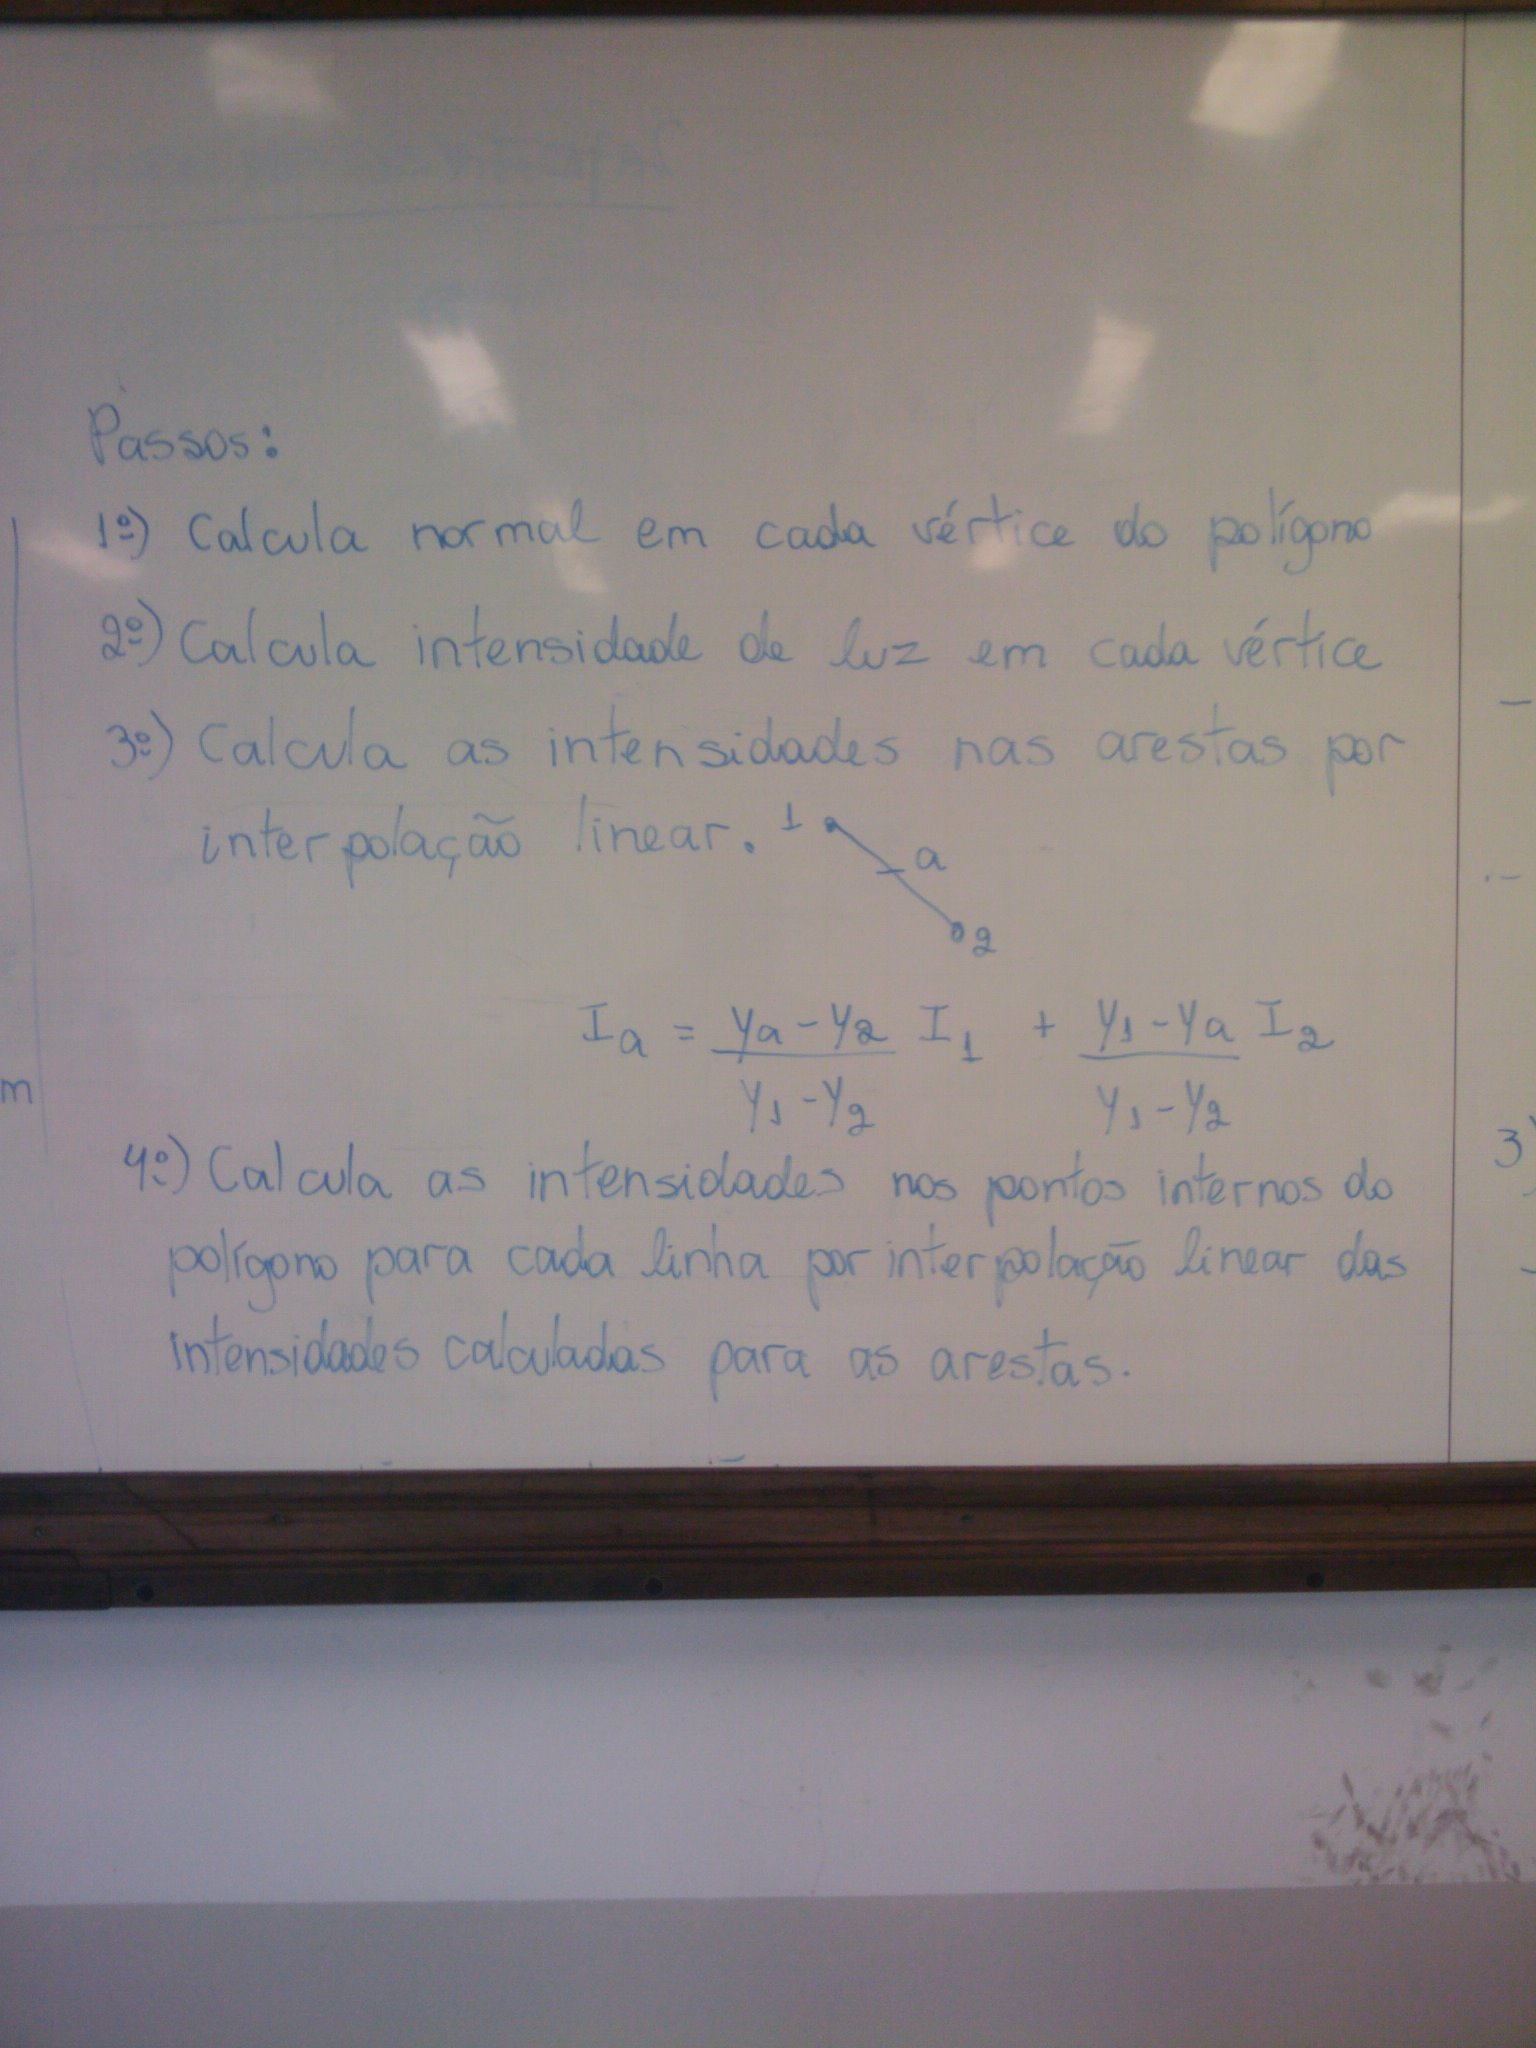 Passos:
1º) Calcula normal em cada vértice do polígono
2º) Calcula intensidade de luz em cada vértice
3º) Calcula as intensidades nas arestas por
interpolação linear. 1
a
2
Ia = ya - y2 I1 + y1 - ya I2
y1 - y2 y1 - y2
m
3)
4º) Calcula as intensidades nos pontos internos do
polígono para cada linha por interpolação linear das
intensidades calculadas para as arestas.